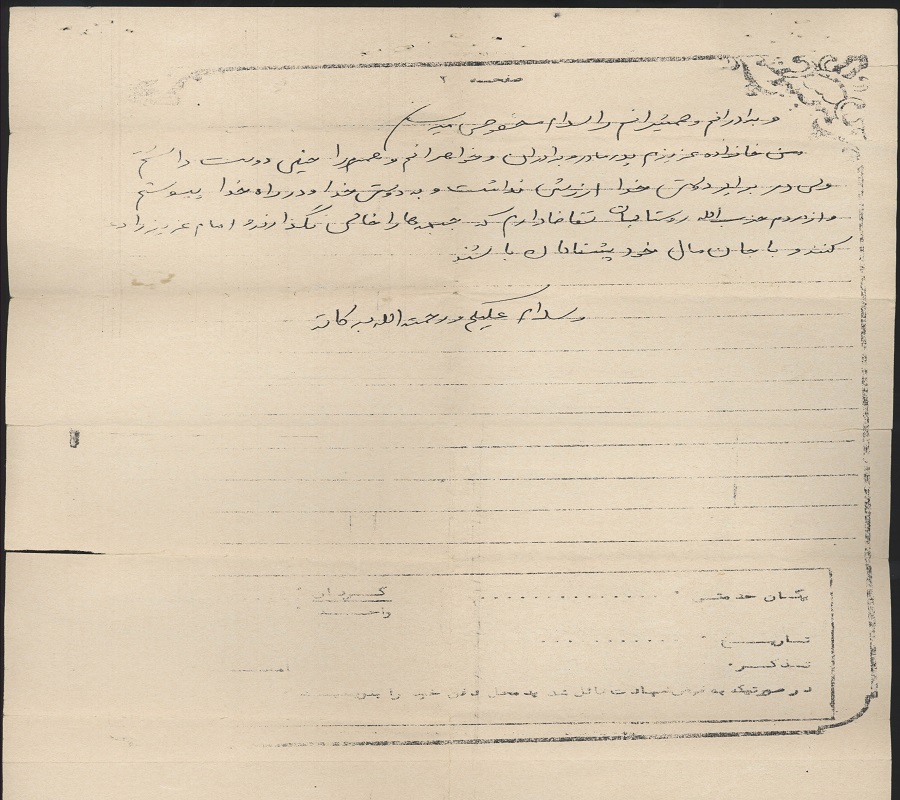 صفحه ۲
و برادرانم و همشیرانم را سلام مخصوص میرسانم
من خانواده عزیزم پدر مادر و برادران و خواهرانم و همسرم را خیلی دوست داشتم
ولی در برابر دوستی خدا ارزش نداشت و به دوستی خدا و در راه خدا پیوستم
و از مردم حزب الله روستایمان تقاضا دارم که جبهه ها را خالی نگذارند و امام عزیز را
کنند و با جان مال خود پشتیبان باشند
وسلام علیکم و رحمت الله برکاته
گردان
واحد
تاریخ
تذکر
در صورتیکه به فیض شهادت نائل شد محل دفن خود را